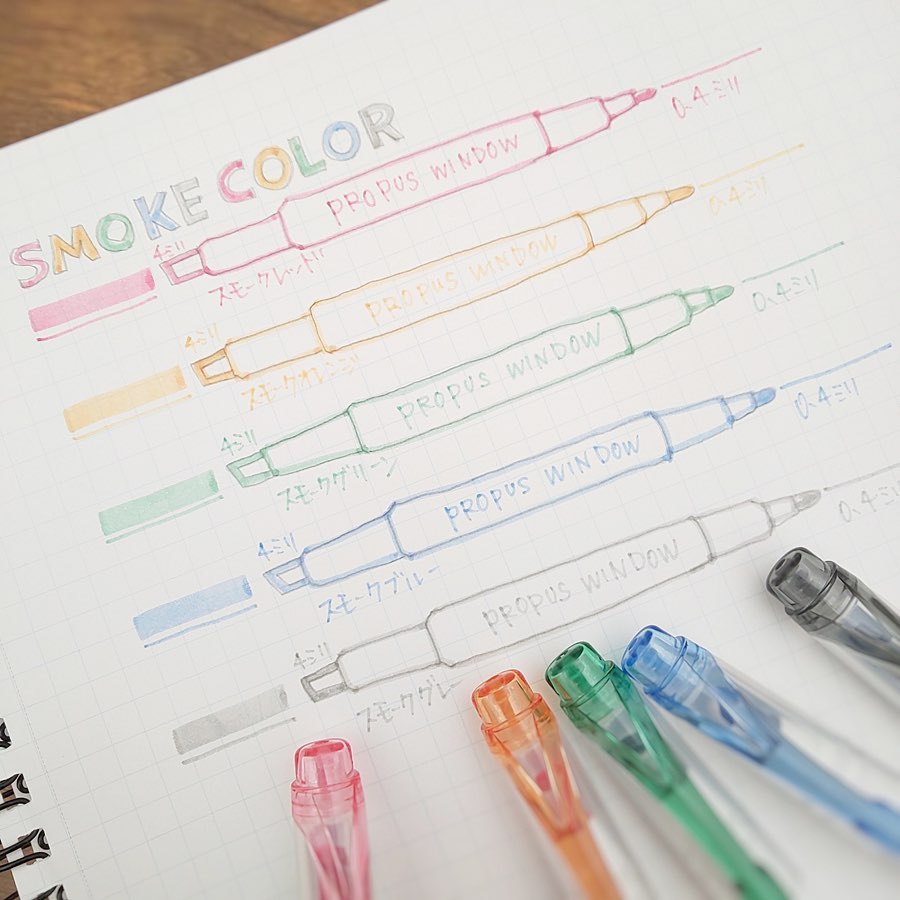 SMOKE COLOR
4ミリ PROPUS WINDOW 0.4ミリ
スモークレッド
4ミリ PROPUS WINDOW 0.4ミリ
スモークオレンジ
4ミリ PROPUS WINDOW 0.4ミリ
スモークグリーン
4ミリ PROPUS WINDOW 0.4ミリ
スモークブルー
4ミリ PROPUS WINDOW 0.4ミリ
スモークグレー